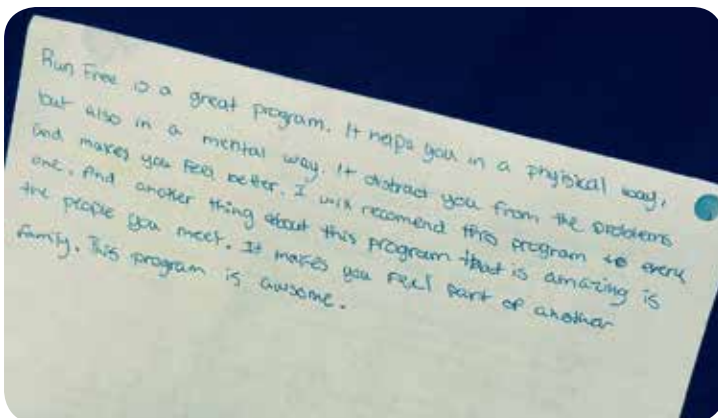 Run Free is a great program. It helps you in a phyiskal way,
but also in a mental way. It distract you from the problems
and makes you feel better. I will recomend this program to every
one. And another thing about this program that is amazing is
the people you meet. It makes you feel part of another
family. This program is awsome.